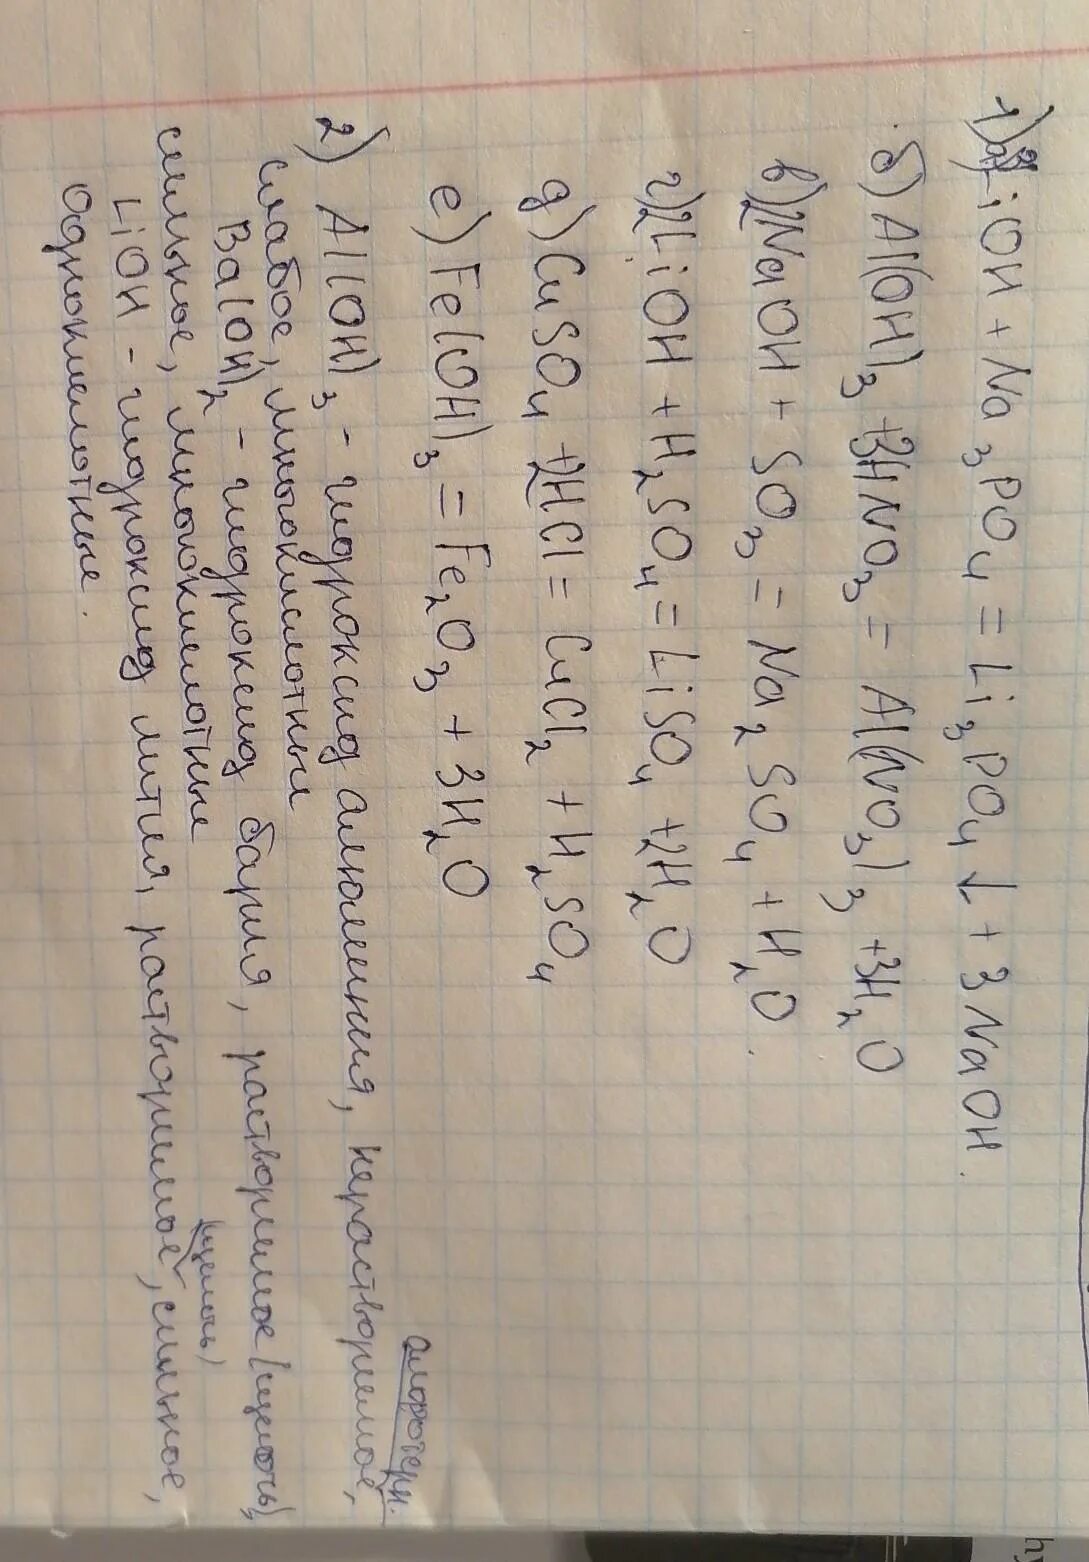 1)а)3LiOH + Na₃PO₄ = Li₃PO₄↓ + 3NaOH.
б) Al(OH)₃ +3HNO₃ = Al(NO₃)₃ +3H₂O
в)2NaOH + SO₃ = Na₂SO₄ + H₂O.
г)2LiOH + H₂SO₄ = LiSO₄ +2H₂O
д) CuSO₄ +2HCl = CuCl₂ + H₂SO₄
е) Fe(OH)₃ = Fe₂O₃ + 3H₂O
амфотерн.
2) Al(OH)₃ - гидроксид алюминия, нерастворимое,
слабое, многокислотные
Ba(OH)₂ - гидроксид бария, растворимое (щелочь),
сильное, многокислотные
(щелочь)
LiOH - гидроксид лития, растворимое, сильное,
однокислотные.